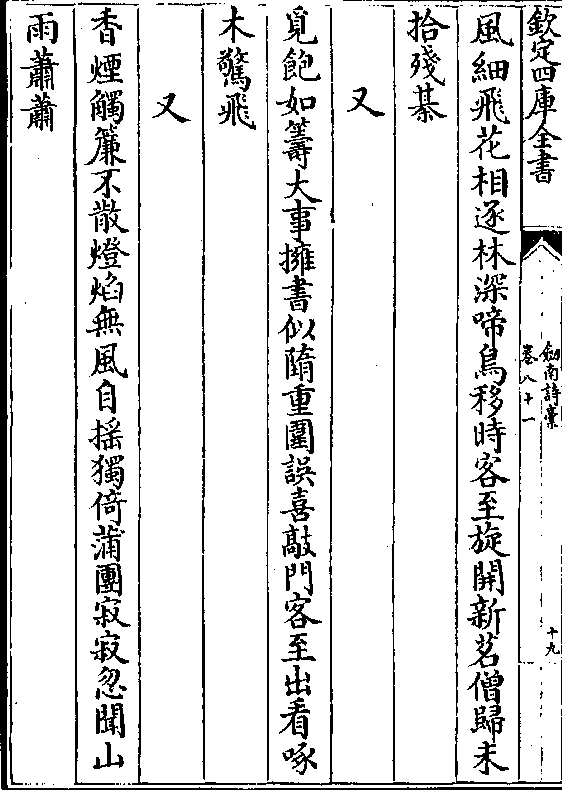 欽定四庫全書
劔南詩藁
卷八十一
十九
風細飛花相逐林深啼鳥移時客至旋開新茗僧歸未
拾殘棊
又
覓飽如籌大事擁書似隋重圍誤喜敲門客至出看啄
木驚飛
又
香煙觸簾不散燈焰無風自揺獨倚蒲團寂寂忽聞山
雨蕭蕭